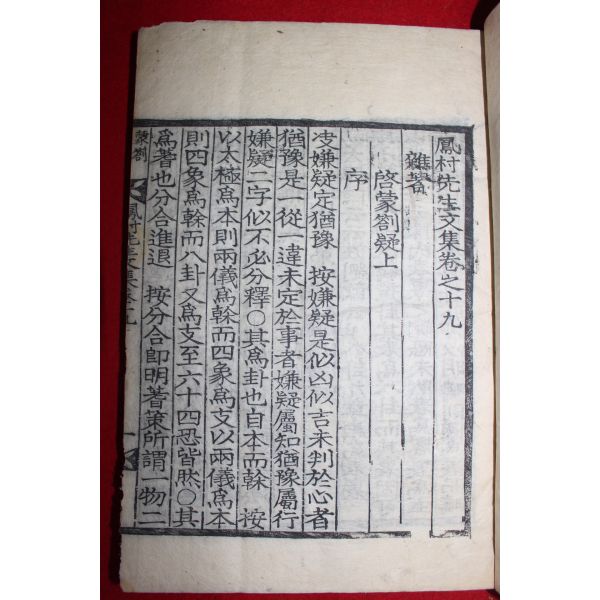 鳳村先生文集卷之十九
雜著
啓蒙劄疑上
序
决嫌疑定猶豫 按嫌疑是似凶似吉未判於心者
猶豫是一從一違未定於事者嫌疑屬知猶豫屬行
嫌疑二字似不必分釋○其爲卦也自本而榦 按
以太極爲本則兩儀爲榦而四象爲支以兩儀爲本
則四象爲榦而八卦又爲支至六十四恐皆然○其
爲蓍也分合進退 按分合卽明蓍策所謂一物二
鳳村先生文集卷十九